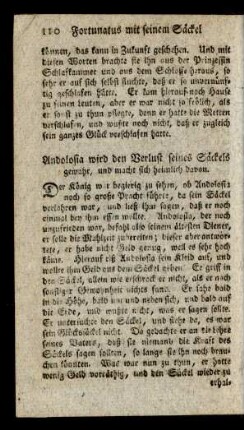 110 Fortunatus mit seinem Säckel
können, das kann in Zukunft geschehen. Und mit
diesen Worten brachte sie ihn aus der Prinzessin
Schlafkammer und aus dem Schlosse heraus, so
sehr er auch sich selbsten fluchte, daß er so unvernünf-
tig geschlafen hätte. Er kam hierauf nach Hause
zu seinen Leuten, aber er war nicht so fröhlich, als
er sonst zu thun pflegte, denn er hatte die Metten
verschlafen, und wußte noch nicht, daß er zugleich
sein ganzes Glück verschlafen hatte.
Andolosia wird den Verlust seines Säckels
gewahr, und macht sich heimlich davon.
Der König war begierig zu sehen, ob Andolosia
noch so große Pracht führte, da sein Säckel
verloren war, und ließ ihm sagen, daß er noch
einmal bey ihm essen wollte. Andolosia, der noch
unzufrieden war, befahl also seinem ältesten Diener,
er sollte die Mahlzeit zubereiten; dieser aberantwor-
tete, er habe nicht Geld genug, weil es sehr hoch
käme. Hierauf riß Andolosia sein Kleid auf, und
wollte ihm Geld aus dem Säckel geben. Er griff in
den Säckel, allein wie erschrack er nicht, als er nach
sonstiger Gewohnheit nichts fand. Er sah bald
in die Höhe, bald um und neben sich, und bald auf
die Erde, und wußte nicht, was er sagen sollte.
Er untersuchte den Säckel, und siehe da, es war
sein Glückssäckel nicht. Da gedachte er an die Lehre
seines Vaters, daß sie niemand die Kraft des
Säckels sagen sollten, so lange sie ihn noch brau-
chen könnten. Was war nun zu thun, er hatte
wenig Geld vorräthig, und den Säckel wieder zu
erhal-